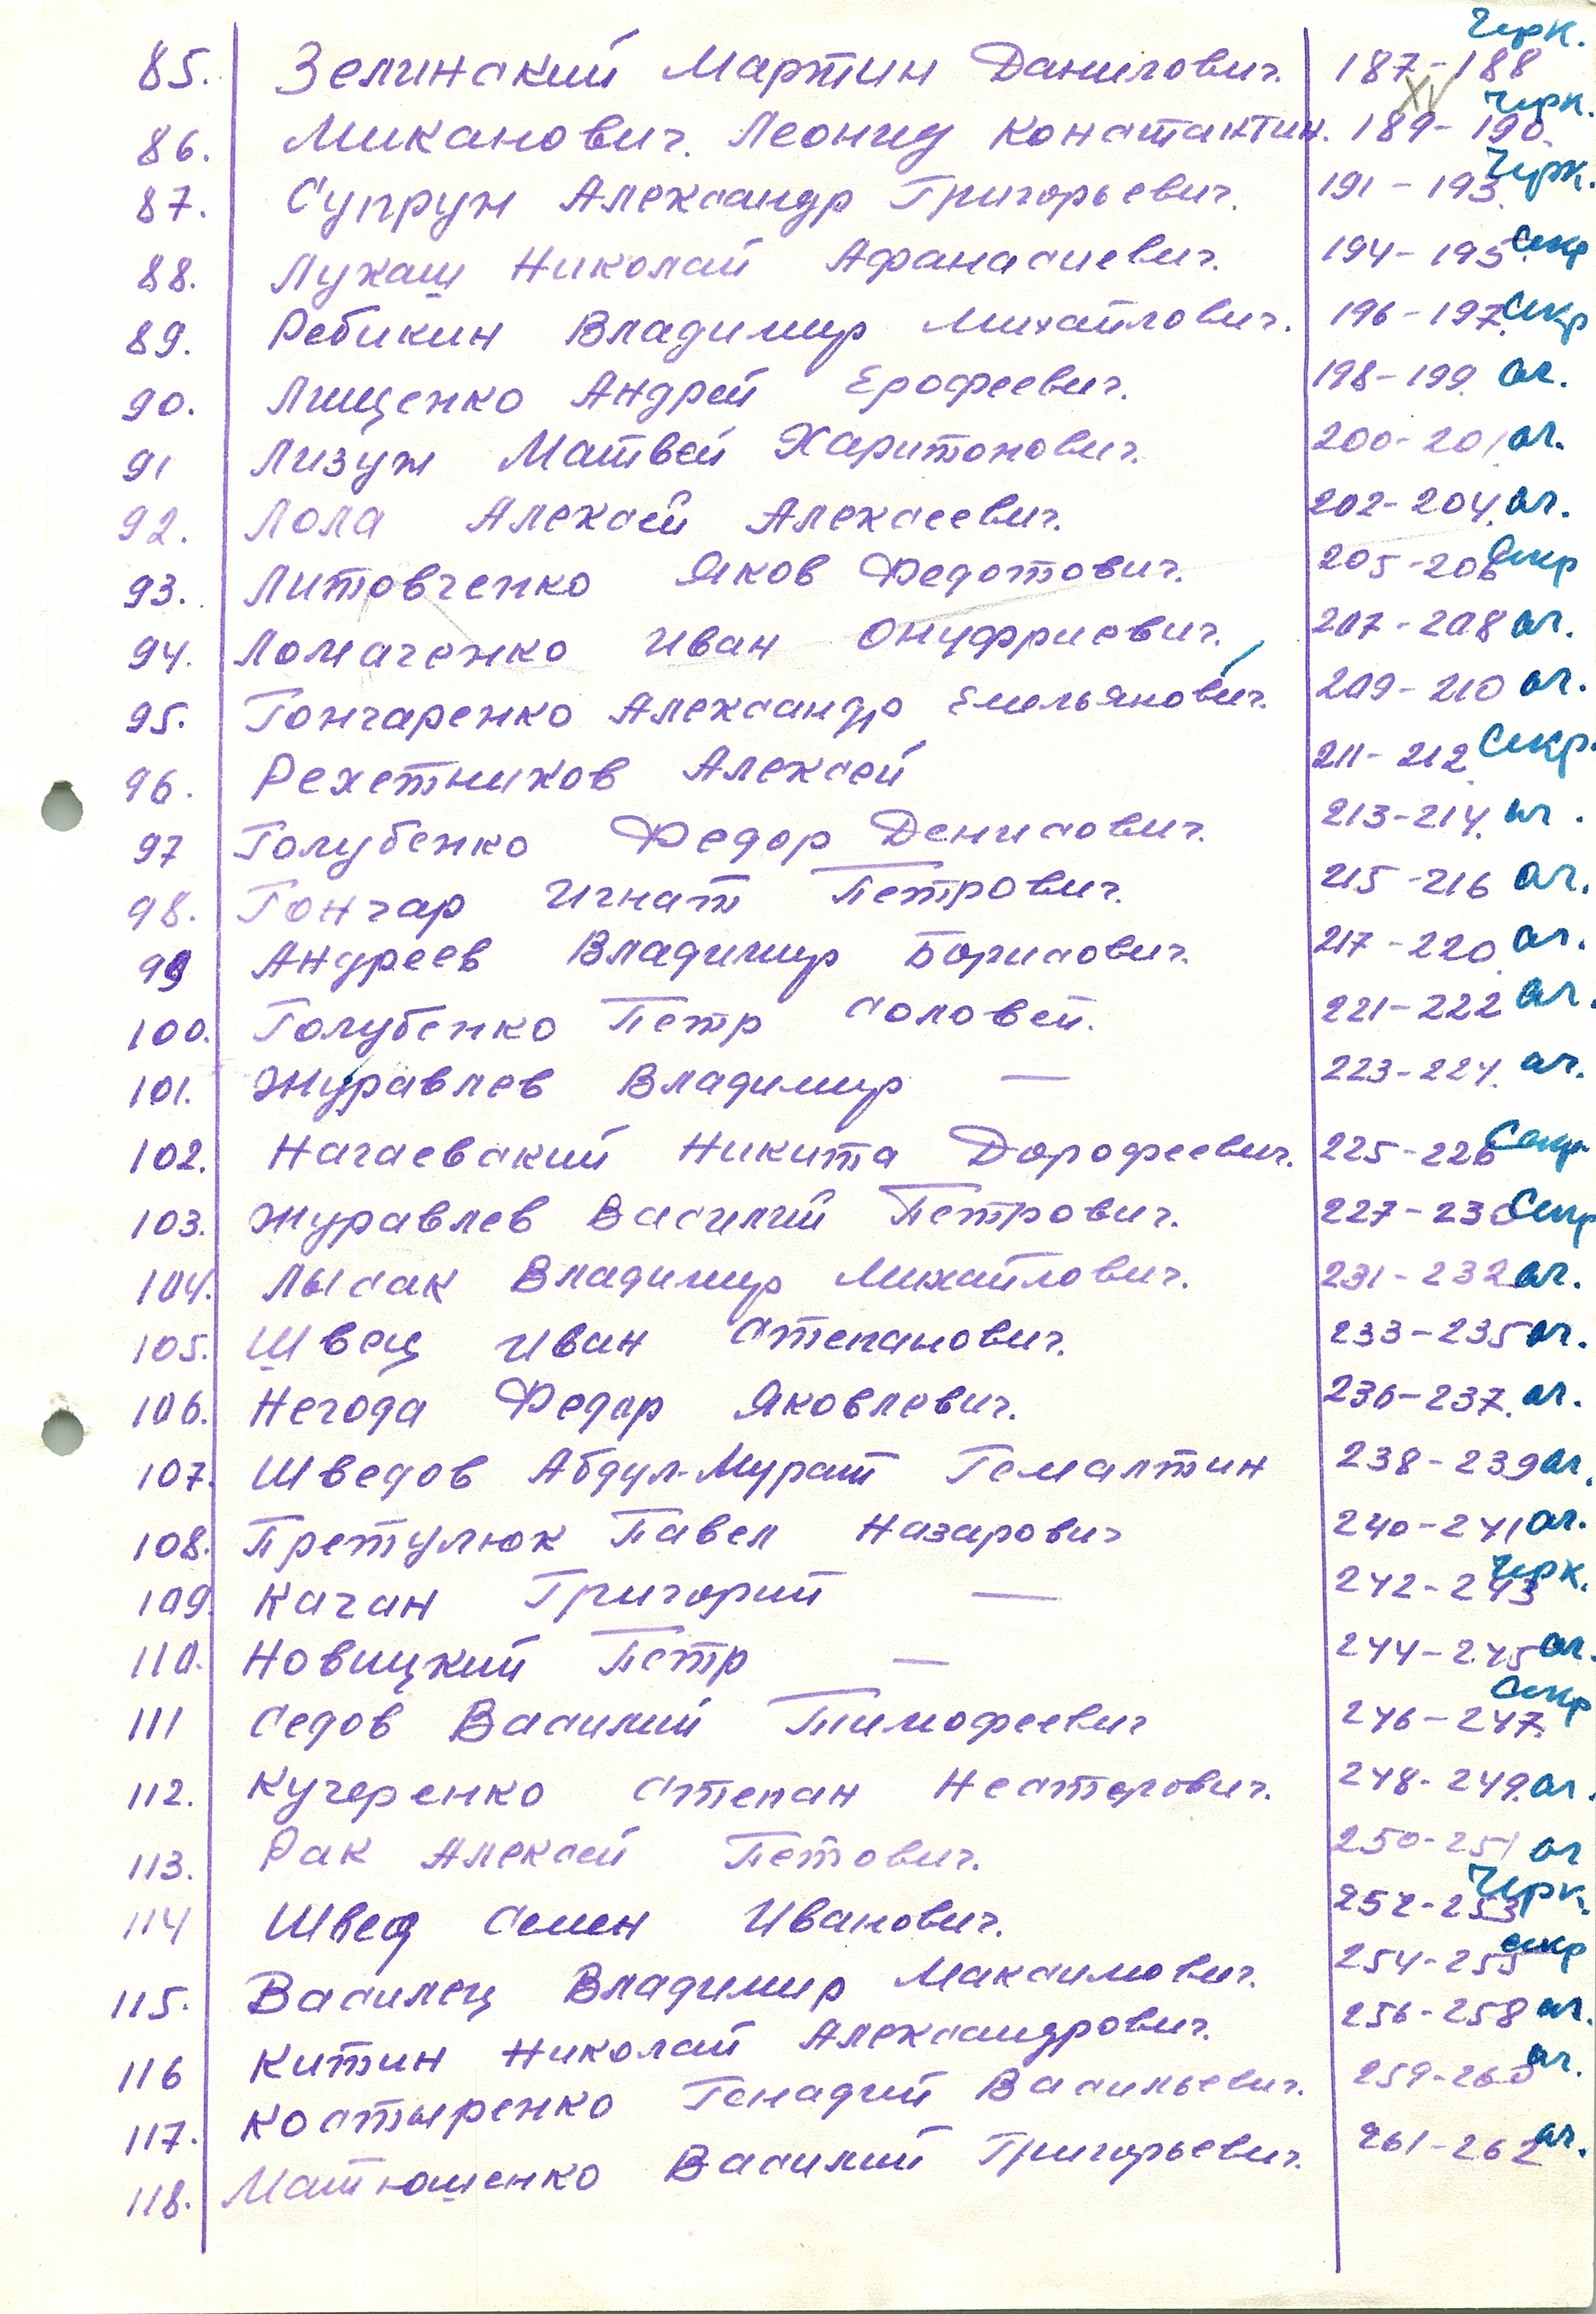 85. Зелинский Мартин Данилович. 187-188 Черк.
86. Миканович. Леонид Константин. 189-190. Черк.
87. Супрун Александр Григорьевич. 191-193. Черк.
88. Лукаш Николай Афанасиевич. 194-195. Секр
89. Ребикин Владимир Михайлович. 196-197. Секр
90. Лищенко Андрей Ерофеевич. 198-199. ог.
91 Лизун Матвей Харитонович. 200-201. ог.
92. Лола Алексей Алексеевич. 202-204. ог.
93. Литовченко Яков Федотович. 205-206 Секр
94. Ломаченко Иван Онуфриевич. 207-208 ог.
95. Гончаренко Александр Емельянович. 209-210 ог.
96. Рехетников Алексей 211-212. Секр.
97 Голубенко Федор Денисович. 213-214. ог.
98. Гончар Игнат Петрович. 215-216 ог.
99 Андреев Владимир Борисович. 217-220. ог.
100. Голубенко Петр Соловей. 221-222 ог.
101. Журавлев Владимир — 223-224. ог.
102. Нагаевский Никита Дорофеевич. 225-226 Секр
103. Журавлев Василий Петрович. 227-230 Секр
104. Лысак Владимир Михайлович. 231-232 ог.
105. Швец Иван Степанович. 233-235 ог.
106. Негода Федор Яковлевич. 236-237. ог.
107. Шведов Абдул-Мурат Гемалтин 238-239 ог.
108. Претулюк Павел Назарович 240-241 ог.
109. Качан Григорий — 242-243 Черк.
110. Новицкий Петр — 244-245 ог.
111 Седов Василий Тимофеевич 246-247. Секр
112. Кучеренко Степан Несторович. 248-249. ог.
113. Рак Алексей Петович. 250-251 ог
114 Швец Семен Иванович. 252-253 Черк.
115. Василец Владимир Максимович. 254-255 Секр
116 Китин Николай Александрович. 256-258 ог.
117. Костыренко Генадий Васильевич. 259-260 ог.
118. Матюшенко Василий Григорьевич. 261-262 ог.